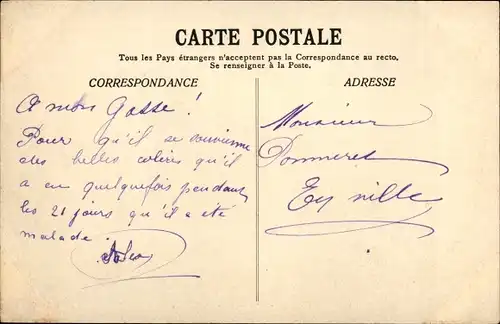 CARTE POSTALE
Tous les Pays étrangers n'acceptent pas la Correspondance au recto.
Se renseigner à la Poste.
CORRESPONDANCE
A mon Gosse !
Pour qu'il se souvienne
des belles colères qu'il
a eu quelquefois pendant
les 21 jours qu'il a été
malade.
ADRESSE
Monsieur
En ville